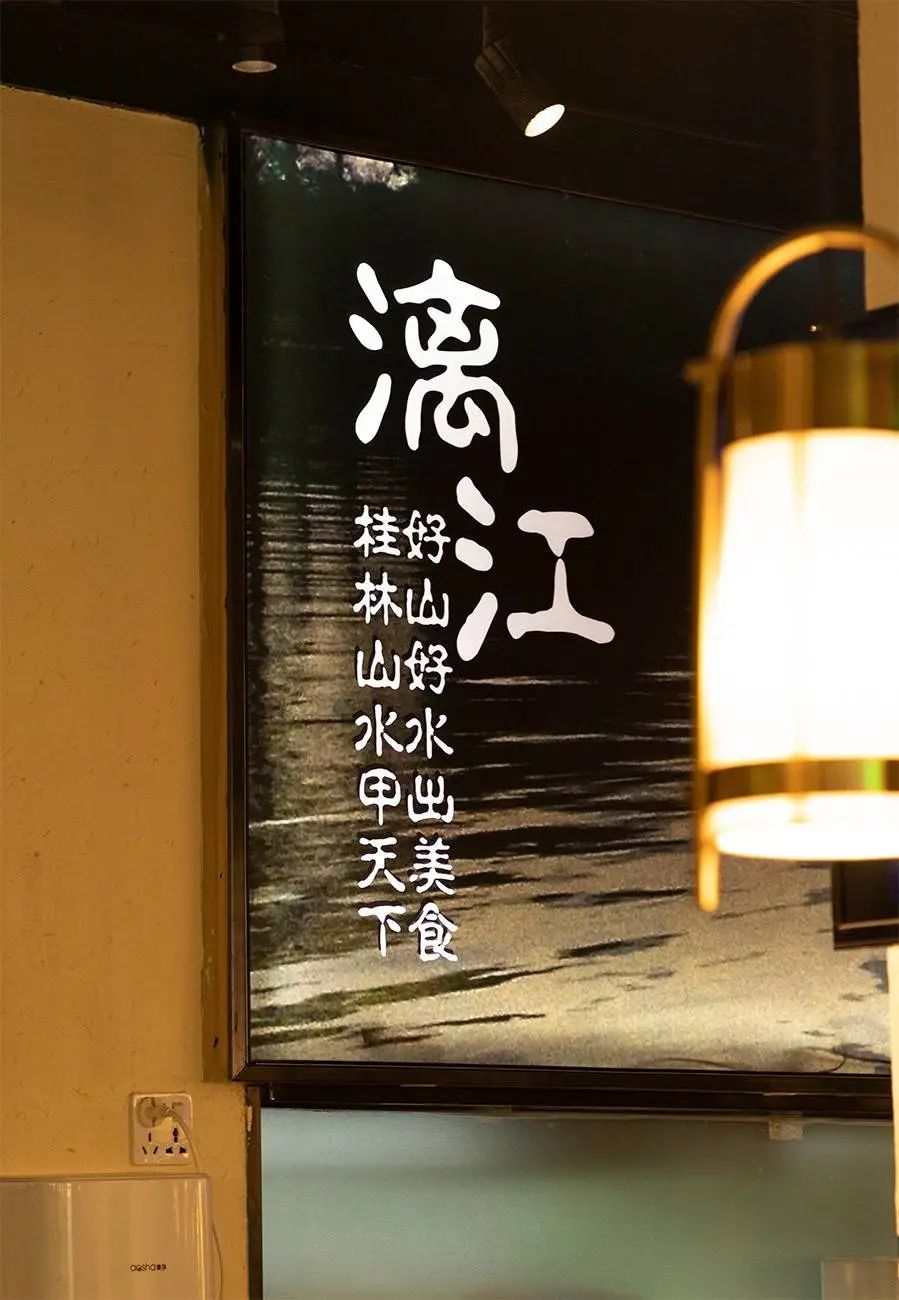 漓江
好山好水出美食
桂林山水甲天下
aosha